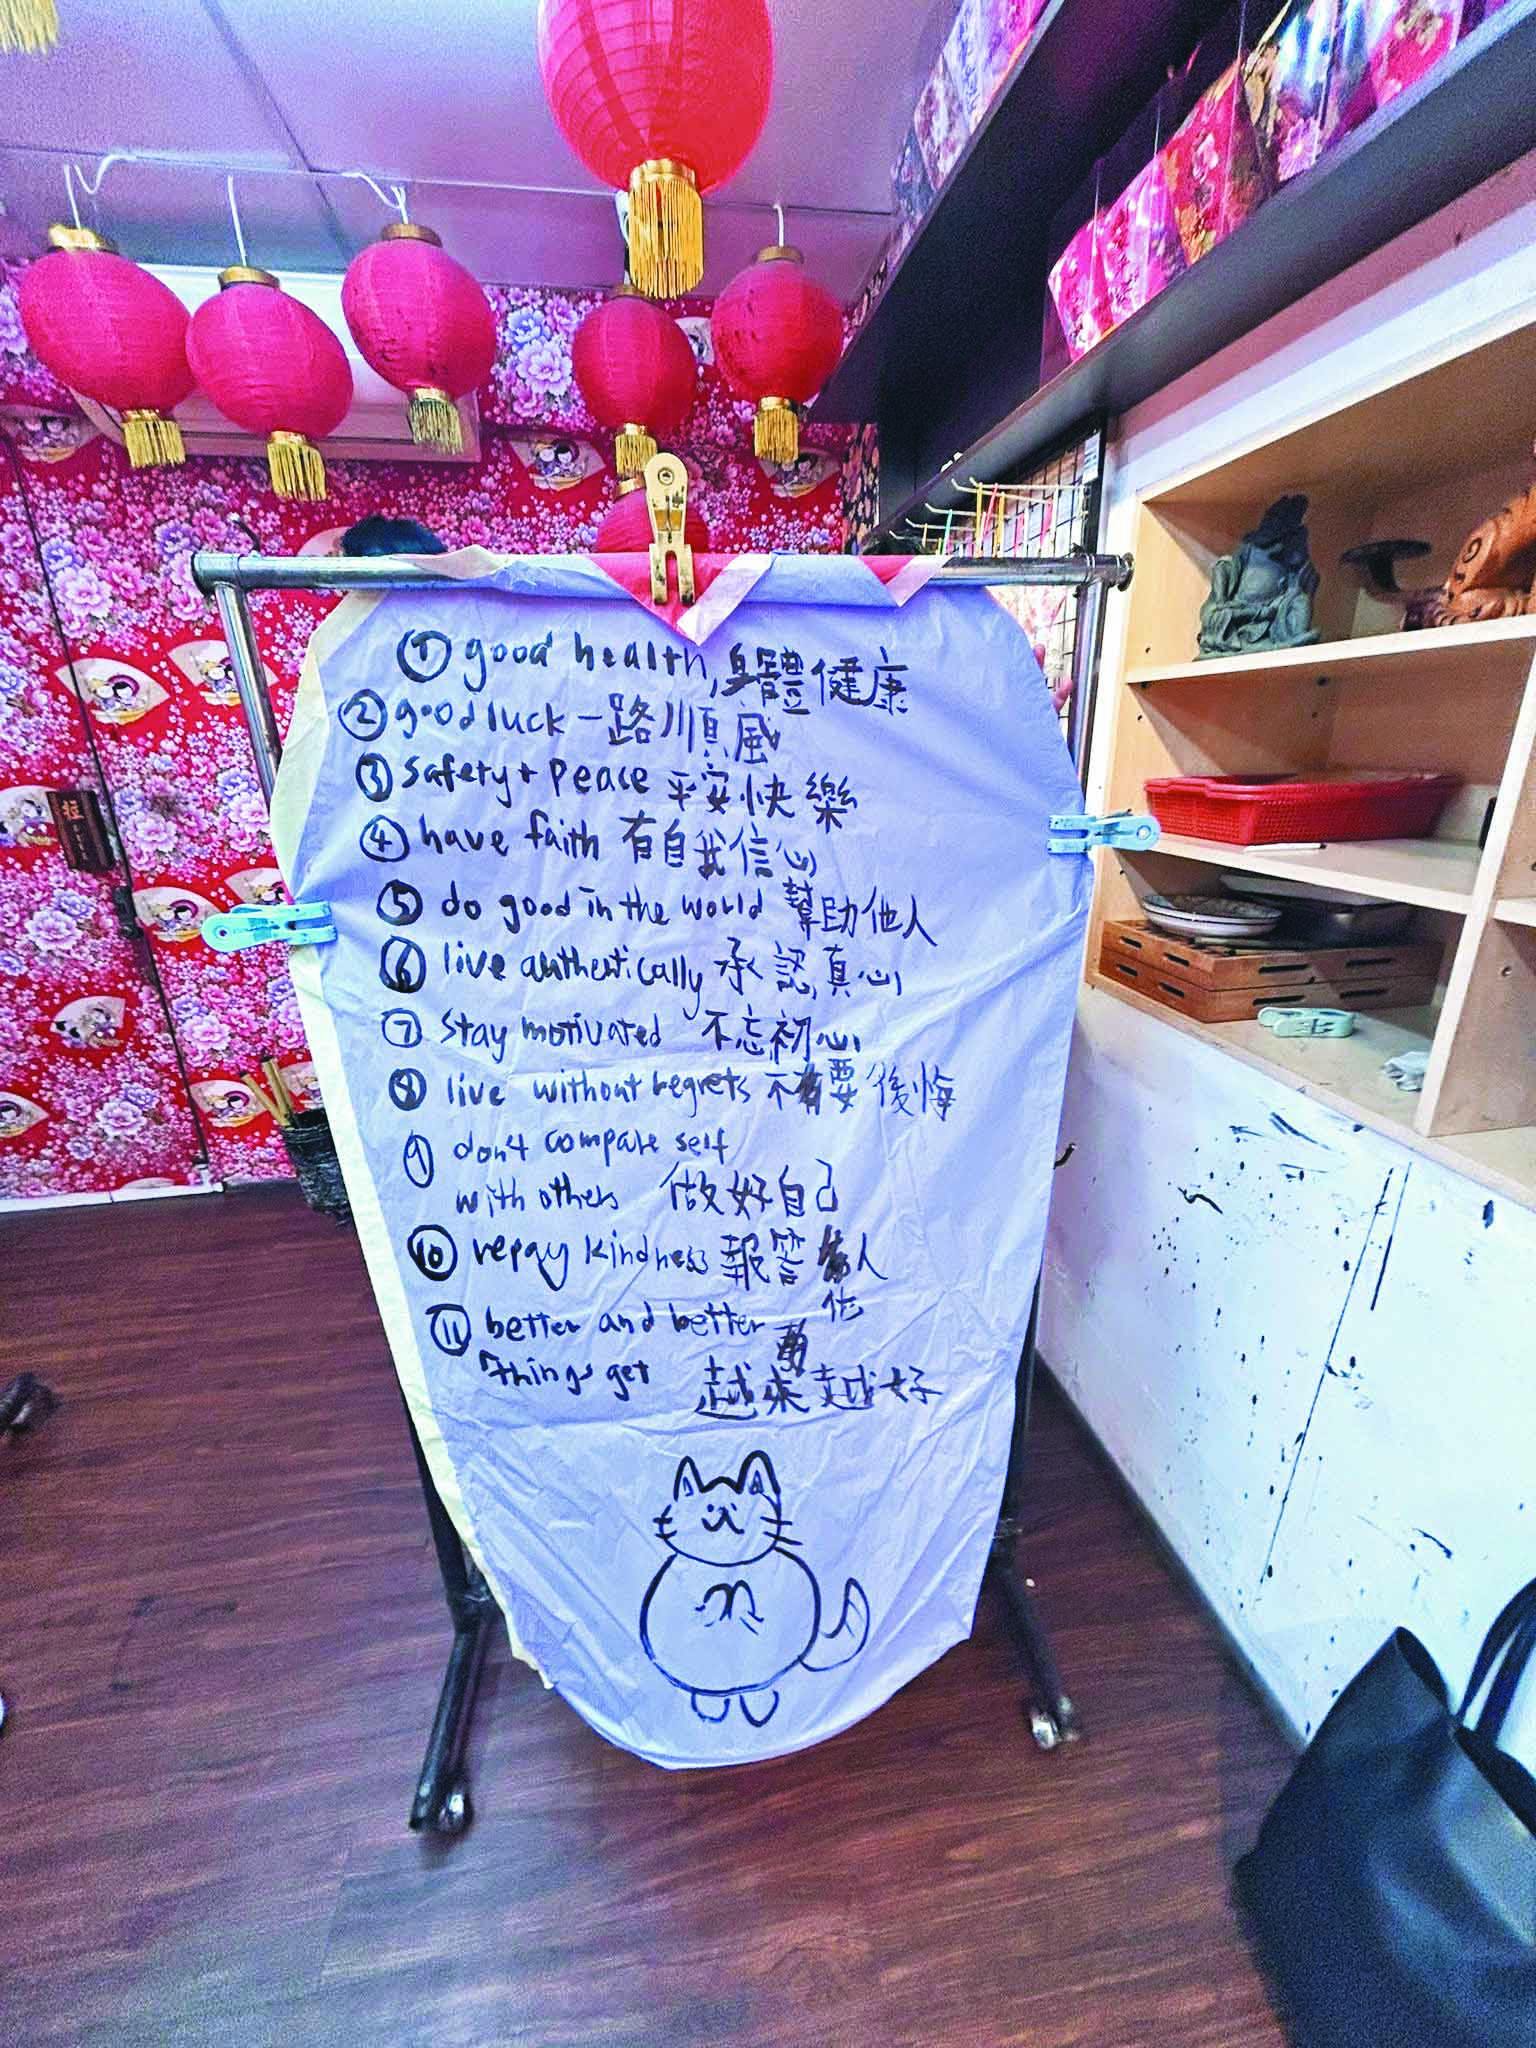 ① good health, 身體健康
② good luck 一路順風
③ safety + peace 平安快樂
④ have faith 有自我信心
⑤ do good in the world 幫助他人
⑥ live authentically 承認真心
⑦ stay motivated 不忘初心
⑧ live without regrets 不要後悔
⑨ don't compare self
with others 做好自己
⑩ repay kindness 報答人
他
⑪ better and better
things get 越來越好